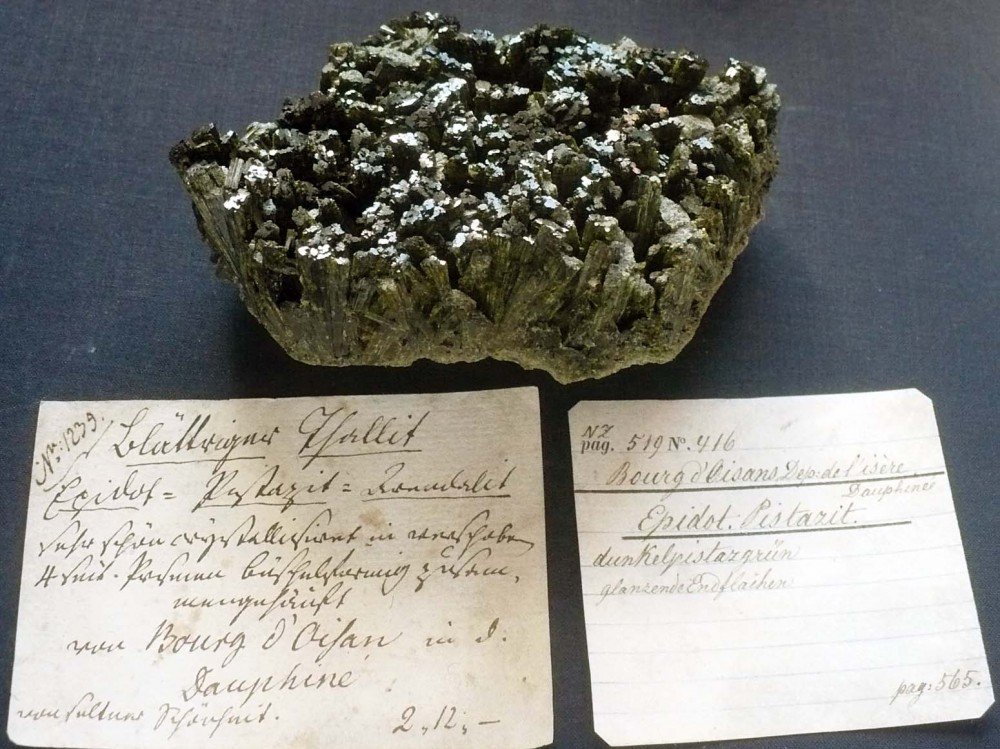 Nr: 1239.
Blättriger Thallit
Epidot = Pistazit = Arendalit
sehr schön crystallisiret in verschoben
4 seit. Prismen büschelförmig zusam,
mengehäuft
von Bourg d'Oisan in d.
Dauphiné
von seltner Schönheit. 2,12,—
NZ
pag. 519 No. 416
Bourg d'Oisans Dep: de l'isère.
Dauphinee
Epidot. Pistazit.
dunkelpistazgrün
glänzende Endflächen
pag: 565.